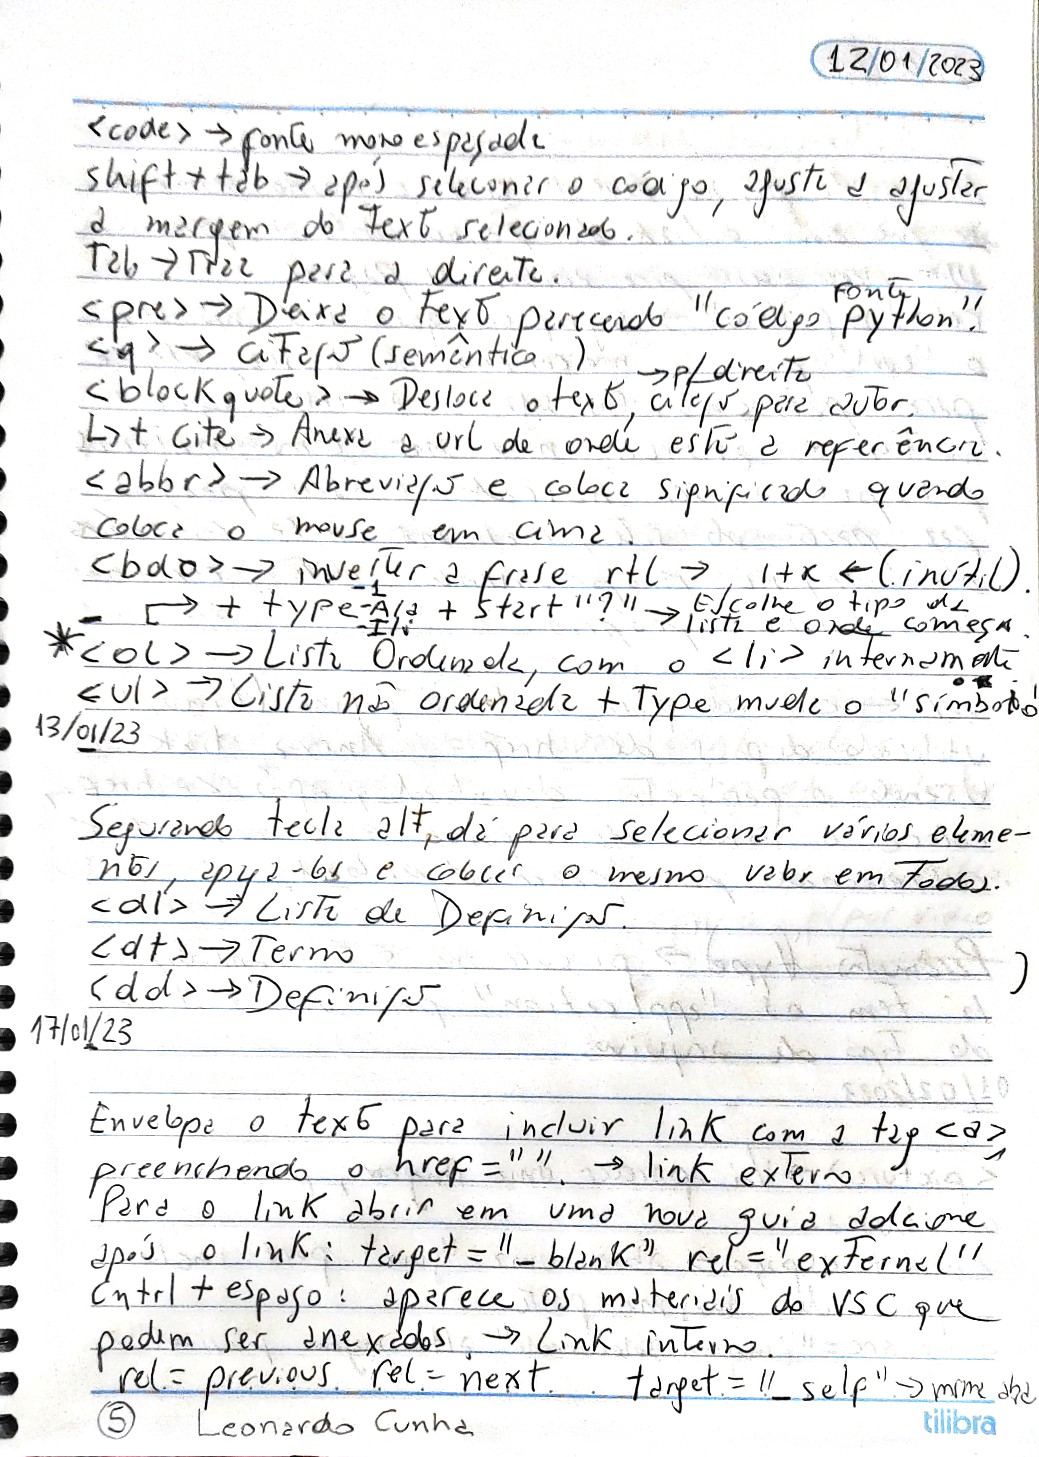 12/01/2023
<code> → fonte monoespaçada
shift + tab → após selecionar o código, ajuste a ajustar
a margem do texto selecionado.
Tab → Traz para a direita.
fonte
<pre> → Deixa o texto parecendo "código python".
<q> → citação (semântico )
→ p/ direita
<blockquote> → Desloca o texto, citação para autor.
↳ + cite → Anexa a url de onde está a referência.
<abbr> → Abreviação e coloca significado quando
coloca o mouse em cima.
<bdo> → inverter a frase rtl → ltx ← (inútil).
-1
[→ + type -A/a + start "?" → Escolhe o tipo da
-I/i lista e onde começa.
* <ol> → Lista Ordenada, com o <li> internamente
<ul> → Lista não ordenada + Type muda o "símbolo
13/01/23
Segurando tecla alt, dá para selecionar vários eleme-
ntos, apaga-los e colocar o mesmo valor em Todos.
<dl> → Lista de Definição.
<dt> → Termo
<dd> → Definição
17/01/23
Envelopa o texto para incluir link com a tag <a>,
preenchendo o href="". → link externo
Para o link abrir em uma nova guia adcione
após o link: target="_blank" rel="external"
Cntrl + espaço: aparece os materiais do VSC que
podem ser anexados → Link interno.
rel= previous. rel= next. target="_self" → mesma aba
5 Leonardo Cunha
tilibra